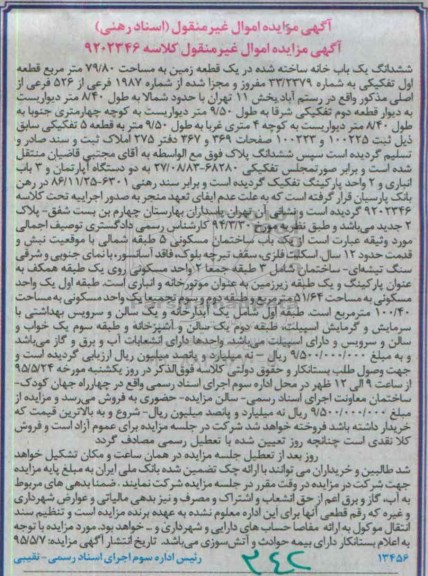 آگهی مزایده اموال غیرمنقول (اسناد رهنی)
آگهی مزایده اموال غیرمنقول کلاسه ۹۲۰۲۳۴۶
ششدانگ یک باب خانه ساخته شده در یک قطعه زمین به مساحت ۷۹/۸۰ متر مربع قطعه
اول تفکیکی به شماره ۲۳/۲۳۷۹ مفروز و مجزا شده از شماره ۱۹۸۷ فرعی از ۵۲۶ فرعی از
اصلی مذکور واقع در رستم آباد بخش ۱۱ تهران با حدود شمالا به طول ۸/۴۰ متر دیواریست
به دیوار قطعه دوم تفکیکی شرقا به طول ۹/۵۰ متر دیواریست به کوچه چهارمتری جنوبا به
طول ۸/۴۰ متر دیواریست به کوچه ۴ متری غربا به طول ۹/۵۰ متر به قطعه ۵ تفکیکی سابق
ذیل ثبت ۱۰۰۲۲۵ و ۱۰۰۲۳۳ صفحات ۳۶۹ و ۳۶۷ دفتر ۲۷۵ املاک ثبت و سند صادر و
تسلیم گردیده است سپس ششدانگ پلاک فوق مع الواسطه به آقای مجتبی قاضیان منتقل
شده است و برابر صورتمجلس تفکیکی ۶۸۲۸۰-۲۷/۰۸/۸۳ به دو دستگاه آپارتمان و ۳ باب
انباری و ۲ واحد پارکینگ تفکیک گردیده است و برابر سند رهنی ۶۳۰۱-۸۶/۱۱/۲۵ در رهن
بانک پارسیان قرار گرفته است که به علت عدم ایفای تعهد منجر به صدور اجراییه تحت کلاسه
۹۲۰۲۳۴۶ گردیده است و نشانی آن تهران پاسداران بهارستان چهارم بن بست شفق- پلاک
۲ جدید می‌باشد و طبق نظریه مورخ ۹۴/۳/۳۰ کارشناس رسمی دادگستری توصیف اجمالی
مورد وثیقه عبارت است از یک باب ساختمان مسکونی ۵ طبقه شمالی با موقعیت نبش و
قدمت حدود ۱۲ سال، اسکلت فلزی، سقف تیرچه بلوک، فاقد آسانسور، با نمای جنوبی و شرقی
سنگ تیشه‌ای- ساختمان شامل ۳ طبقه جمعا ۲ واحد مسکونی روی یک طبقه همکف به
عنوان پارکینگ و یک طبقه زیرزمین به عنوان موتورخانه و انباری است. طبقه اول یک واحد
مسکونی به مساحت ۵۱/۶۴ مترمربع و طبقه دوم و سوم تجمیعا یک واحد مسکونی به مساحت
۱۰۰/۴۰ مترمربع است. طبقه اول شامل یک آبدارخانه و یک سالن و سرویس بهداشتی با
سرمایش و گرمایش اسپیلت، طبقه دوم یک سالن و آشپزخانه و طبقه سوم یک خواب و
سالن و سرویس و دارای اسپیلت می‌باشد. واحدها دارای انشعابات آب و برق و گاز می‌باشد
و به مبلغ ۹/۵۰۰/۰۰۰/۰۰۰ ریال – نه میلیارد و پانصد میلیون ریال ارزیابی گردیده است و
جهت وصول طلب بستانکار و حقوق دولتی کلاسه فوق‌الذکر در روز یکشنبه مورخه ۹۵/۵/۲۴
از ساعت ۹ الی ۱۲ ظهر در محل اداره سوم اجرای اسناد رسمی واقع در چهارراه جهان کودک-
ساختمان معاونت اجرای اسناد رسمی- سالن مزایده- حضوری به فروش می‌رسد و مزایده از
مبلغ ۹/۵۰۰/۰۰۰/۰۰۰ ریال نه میلیارد و پانصد میلیون ریال- شروع و به بالاترین قیمت که
خریدار داشته باشد فروخته خواهد شد شرکت در جلسه مزایده برای عموم آزاد است و فروش
کلا نقدی است چنانچه روز تعیین شده با تعطیل رسمی مصادف گردد
روز بعد از تعطیل جلسه مزایده در همان ساعت و مکان تشکیل خواهد
شد طالبین و خریداران می توانند با ارائه چک تضمین شده بانک ملی ایران به مبلغ پایه مزایده
جهت شرکت در مزایده در وقت مقرر در جلسه مزایده شرکت نمایند. ضمنا بدهی های مربوط
به آب، گاز و برق اعم از حق انشعاب و اشتراک و مصرف و نیز بدهی مالیاتی و عوارض شهرداری
و غیره که رقم قطعی آنها برای این اداره معلوم نشده به عهده برنده مزایده است و تنظیم سند
انتقال موکول به ارائه مفاصا حساب های دارایی و شهرداری و ... خواهد بود. مورد مزایده با توجه
به اعلام بستانکار دارای بیمه حوادث و آتش‌سوزی می‌باشد. تاریخ انتشار آگهی مزایده: ۹۵/۵/۷
۱۳۴۵۶ رئیس اداره سوم اجرای اسناد رسمی - نقیبی
۲۴۲